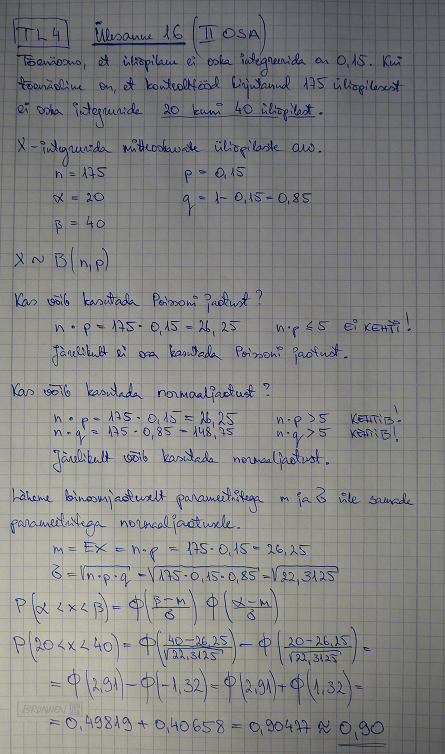 TL4 Ülesanne 16 (II OSA)
Tõenäosus, et üliõpilane ei oska integreerida on 0,15. Kui
tõenäoline on, et kontrolltööd kirjutanud 175 üliõpilasest
ei oska integreerida 20 kuni 40 üliõpilast.
X - integreerida mitteoskavate üliõpilaste arv.
n = 175 p = 0,15
α = 20 q = 1 - 0,15 = 0,85
β = 40
X ~ B(n,p)
Kas võib kasutada Poissoni jaotust?
n · p = 175 · 0,15 = 26,25 n·p ≤ 5 EI KEHTI!
Järelikult ei saa kasutada Poissoni jaotust.
Kas võib kasutada normaaljaotust?
n · p = 175 · 0,15 = 26,25 n·p > 5 KEHTIB!
n · q = 175 · 0,85 = 148,75 n·q > 5 KEHTIB!
Järelikult võib kasutada normaaljaotust.
Läheme binoomjaotuselt parameetritega m ja σ üle samade
parameetritega normaaljaotusele.
m = EX = n·p = 175 · 0,15 = 26,25
σ = √n·p·q = √175 · 0,15 · 0,85 = √22,3125
P(α < x < β) = Φ(β-m/σ) Φ(α-m/σ)
P(20 < x < 40) = Φ(40-26,25/√22,3125) - Φ(20-26,25/√22,3125) =
= Φ(2,91) - Φ(-1,32) = Φ(2,91) + Φ(1,32) =
= 0,49819 + 0,40658 = 0,90477 ≈ 0,90
BRUNNEN